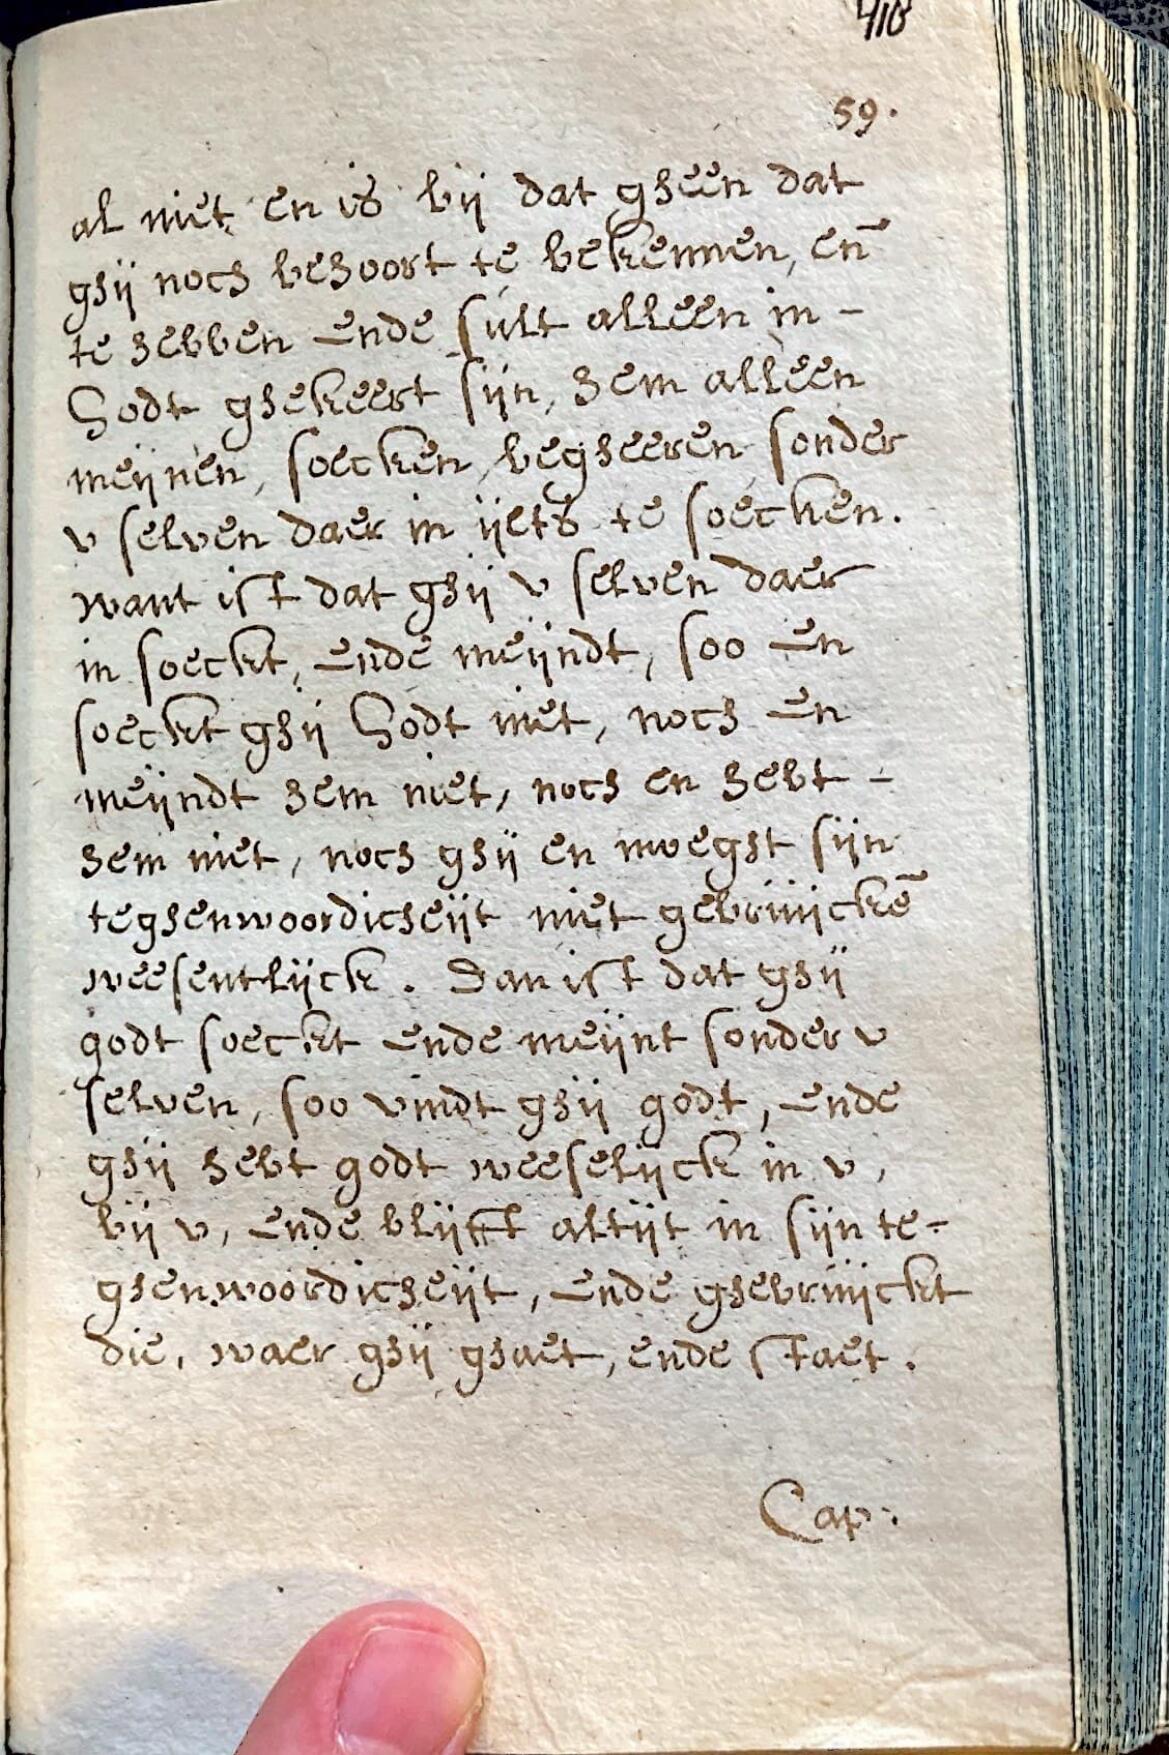 410
59.
al niet en is bij dat gheen dat
ghij noch behoort te bekennen, en̄
te hebben ende sult alleen in -
Godt ghekeert sijn, hem alleen
meijnen, soecken, begheeren sonder
v selven daer in ijets te soecken.
want ist dat ghij v selven daer
in soeckt, ende meijndt, soo en
soeckt ghij Godt niet, noch en
meijndt hem niet, noch en hebt -
hem niet, noch ghij en moeght sijn
teghenwoordicheijt niet gebruijckē
weesentlijck. Dan ist dat ghij
godt soeckt ende meijnt sonder v
selven, soo vindt ghij godt, ende
ghij hebt godt weeselijck in v,
bij v, ende blijft altijt in sijn te-
ghenwoordicheijt, ende ghebruijckt
die, waer ghij ghaet, ende staet.
Cap: